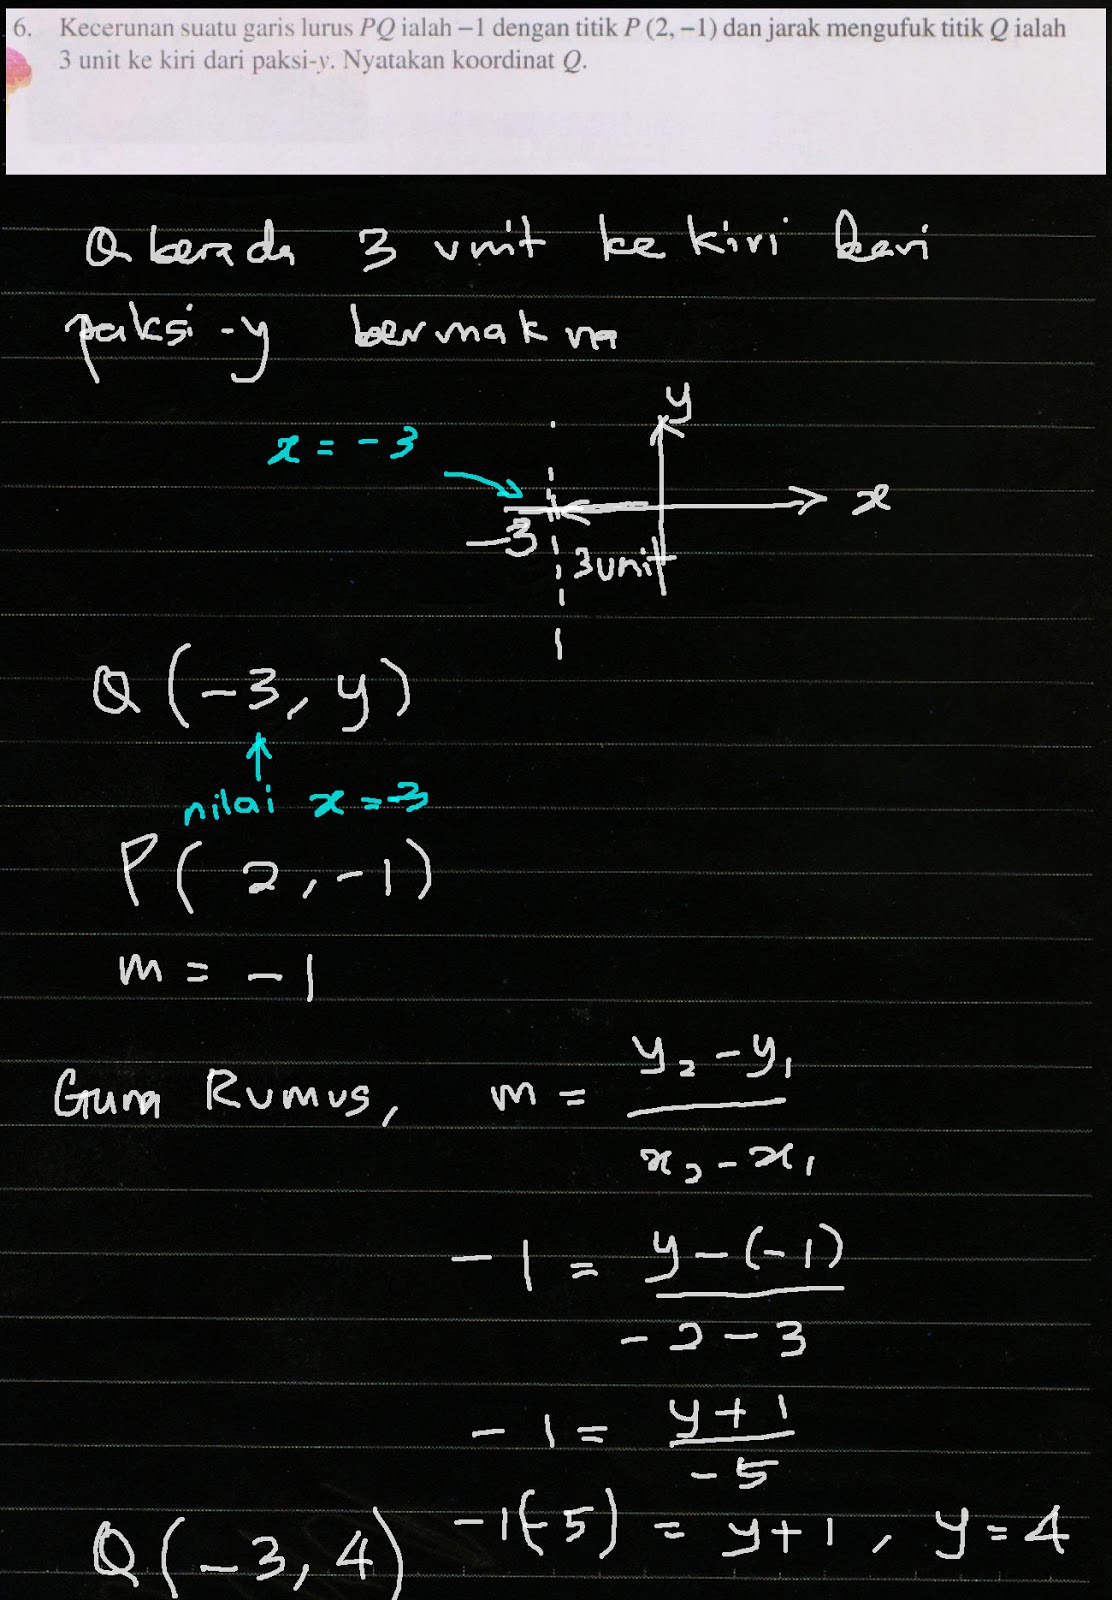 6. Kecerunan suatu garis lurus PQ ialah –1 dengan titik P (2, –1) dan jarak mengufuk titik Q ialah
3 unit ke kiri dari paksi-y. Nyatakan koordinat Q.
Q berada 3 unit ke kiri dari
paksi-y bermakna
y
x = -3
x
-3
3 unit
Q (-3, y)
nilai x = -3
P ( 2, -1)
m = -1
Guna Rumus, m = (y₂ - y₁) / (x₂ - x₁)
-1 = (y - (-1)) / (-2 - 3)
-1 = (y + 1) / (-5)
-1(-5) = y + 1 , y = 4
Q (-3, 4)